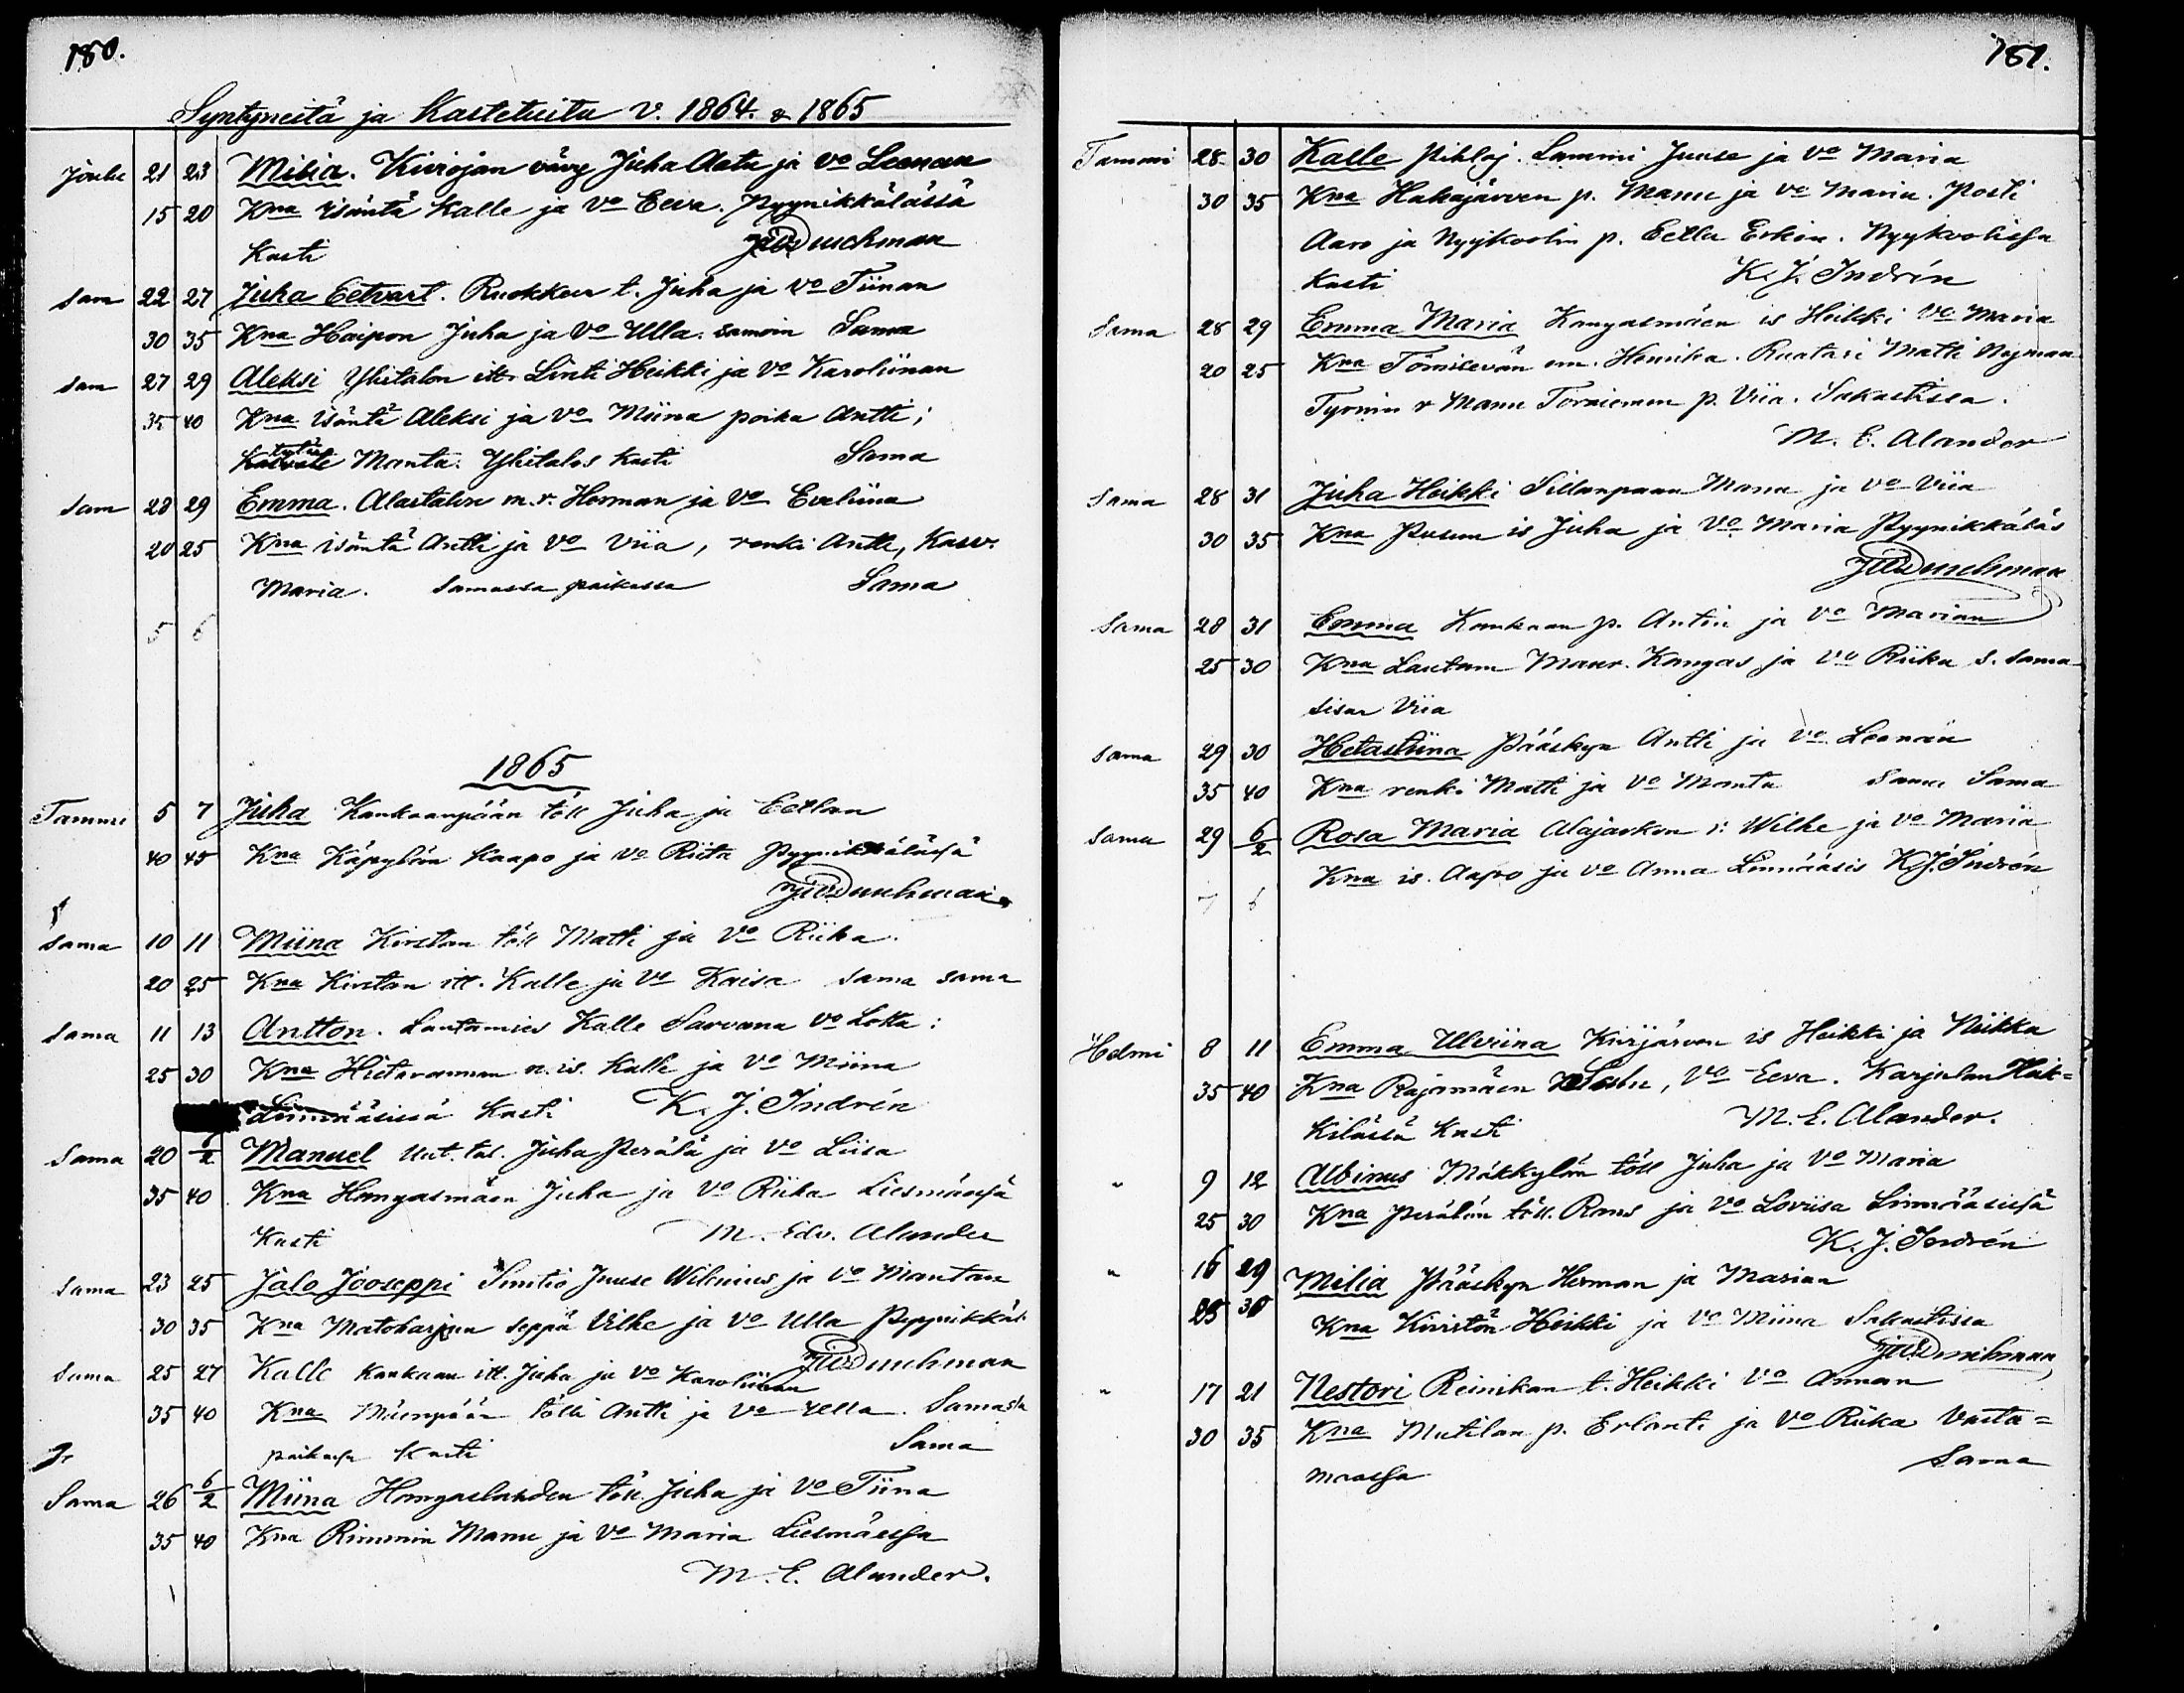 180.
Syntyneitä ja Kastetuita v. 1864. & 1865
Joulu 21 23 Milia. Kiviojan vävy Juha Aatu ja vo Leenan
15 20 Kna isäntä Kalle ja vo Eeva. Pyynikkälässä
Kasti
sam 22 27 Juha Eetvart. Ruokkeen t. Juha ja vo Tiinan
30 35 Kna Haipon Juha ja vo Ulla. samoin Sama
sam 27 29 Aleksi Ylitalon itt. Linti Heikki ja vo Karoliinan
35 40 Kna isäntä Aleksi ja vo Miina poika Antti;
tytär Manta. Ylitalos kasti Sama
sam 28 29 Emma. Alastalon m.r. Herman ja vo Eveliina
20 25 Kna isäntä Antti ja vo Viia, renki Antti, Kasv.
Maria. Samassa paikassa Sama
5 6
1865
Tammi 5 7 Juha Kankaanpään töll Juha ja Eetlan
40 45 Kna Käpylän Kaapo ja vo Riita Pyynikkälässä
sama 10 11 Miina Kivistön töll Matti ja vo Riika.
20 25 Kna Kivistön itt. Kalle ja vo Kaisa sama sama
sama 11 13 Antton. Lautamies Kalle Sarvana vo Lotta:
25 30 Kna Hietarannan n. is. Kalle ja vo Miina
Linnääsissä Kasti K. J. Indrén
Sama 20 6/2 Manuel uut. tal. Juha Perälä ja vo Liisa
35 40 Kna Hongasmäen Juha ja vo Riika Liesmäessä
Kasti M. Edv. Alander
Sama 23 25 Jalo Jooseppi Suntio Juuse Wilenius ja vo Mantan
30 35 Kna Matoharjun seppä Vilhe ja vo Ulla Pyynikkäl.
Sama 25 27 Kalle Kankaan itt. Juha ja vo Karoliinan
35 40 Kna Mäenpään tölli Antti ja vo Ulla. Samassa
paikassa Kasti Sama
Sama 26 6/2 Miina Hongaslahden töll. Juha ja vo Tiina
35 40 Kna Rimmin Manu ja vo Maria Liesmäessä
M. E. Alander.
181.
Tammi 28 30 Kalle Pihlaj. Lammi Juuse ja vo Maria
30 35 Kna Hakajärven p. Manu ja vo Maria. Posti
Aaro ja Nyykoolin p. Eetla Erkin. Nyykoolissa
Kasti K. J. Indrén
Sama 28 29 Emma Maria Kangasmäen is Heikki vo Maria
20 25 Kna Tömilevän em. Henrika. Ruatasi Matti Nyman
Tyrnin r Manu Torniemen p. Viia. Sakastissa.
M. E. Alander
Sama 28 31 Juha Heikki Sillanpään Manu ja vo Viia
30 35 Kna Pusun is Juha ja vo Maria Pyynikkäläs
Sama 28 31 Emma Kankaan p. Antin ja vo Marian
25 30 Kna Lautam Maur. Kangas ja vo Riika s. sama
sisar Viia
sama 29 30 Hetastiina Pääskyn Antti ja vo Leenan
35 40 Kna renki Matti ja vo Manta Sama Sama
Sama 29 6/2 Rosa Maria Alajaskon r. Wilhe ja vo Maria
Kna is. Aapo ja vo Anna Linnääsis K. J. Indrén
Helmi 8 11 Emma Ulviina Kiirjärven is Heikki ja Niikka
35 40 Kna Rajamäen, vo Eeva. Karjulan Häk=
kilässä Kasti M. E. Alander.
" 9 12 Albinus Mäkkylän töll Juha ja vo Maria
25 30 Kna Perälän töll. Rans ja vo Loviisa Linnääsissä
K. J. Indrén
" 16 29 Milia Pääskyn Herman ja Marian
25 30 Kna Kivistön Heikki ja vo Miina Sakastissa
" 17 21 Nestori Reinikan t. Heikki vo Annan
30 35 Kna Mutilan p. Erlanti ja vo Riika Vasta=
maassa Sama